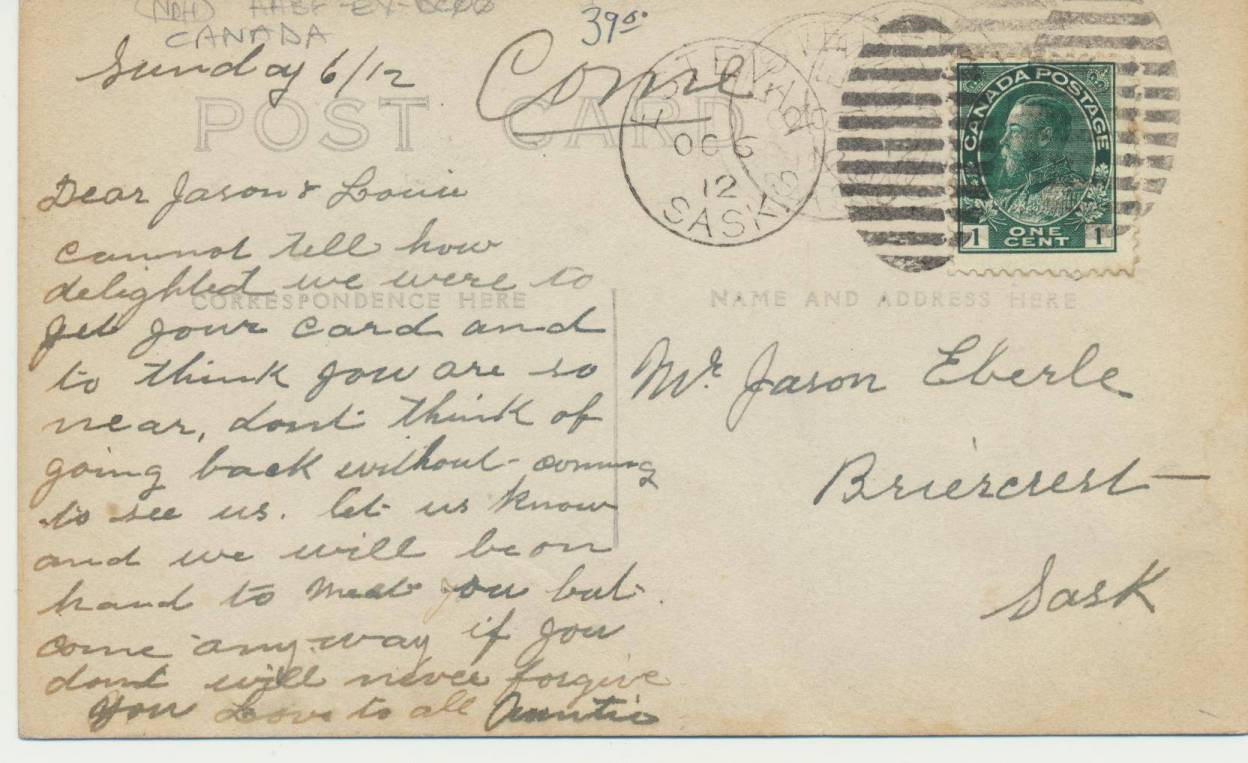 CANADA
39⁵⁰
Sunday 6/12
Come
POST CARD
ESTEVAN
OC 6
12
SASK
CANADA POSTAGE
1 ONE CENT 1
Dear Jason & Louie
cannot tell how
delighted we were to
CORRESPONDENCE HERE
NAME AND ADDRESS HERE
get your card and
to think you are so
near, dont think of
going back without coming
to see us. let us know
and we will be on
hand to meet you but
come any-way if you
dont will never forgive
you Love to all Auntie
Mr. Jason Eberle
Briercrest
Sask